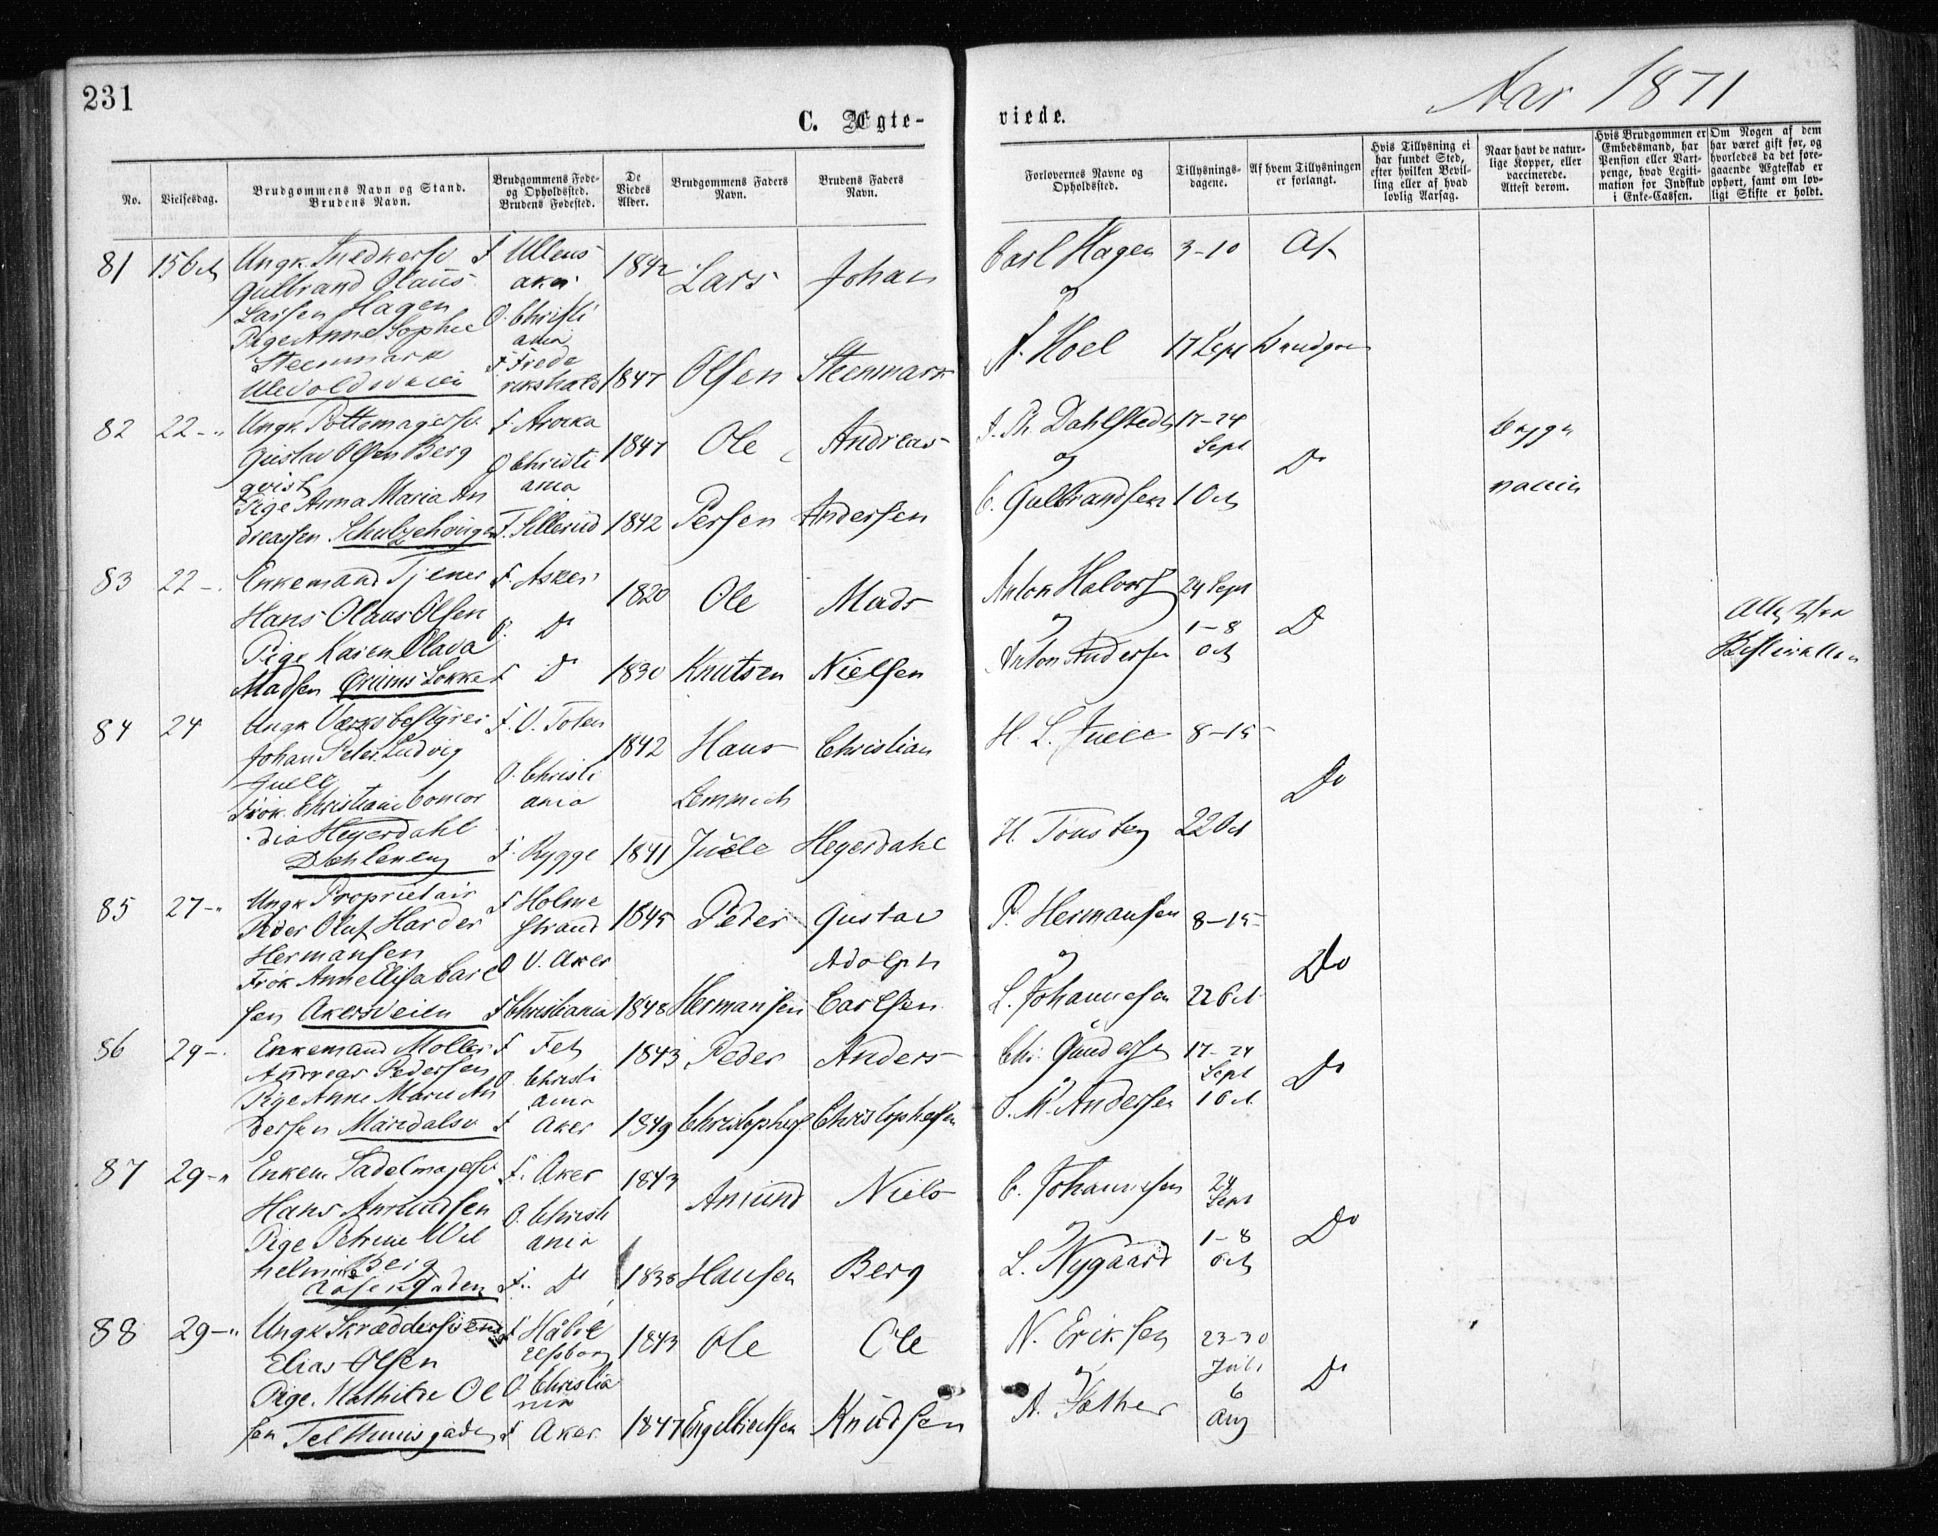 231
C. Ægte-
viede.
Aar 1871
No.
Vielsesdag.
Brudgommens Navn og Stand.
Brudens Navn.
Brudgommens Føde-
og Opholdssted.
Brudens Fødested.
De
Viedes
Alder.
Brudgommens Faders
Navn.
Brudens Faders
Navn.
Forlovernes Navne og
Opholdssted.
Tillysnings-
dagene.
Af hvem Tillysningen
er forlangt.
Hvis Tillysning ei
har fundet Sted,
efter hvilken Bevil-
ling eller af hvad
lovlig Aarsag.
Naar havt de natur-
lige Kopper, eller
vaccinerede.
Attest derom.
Hvis Brudgommen er
Embedsmand, har
Pension eller Vart-
penge, hvad Legiti-
mation for Indskud
i Enke-Cassen.
Om Nogen af dem
har været gift før, og
hvorledes da det fore-
gaaende Ægteskab er
ophørt, samt om lov-
ligt Skifte er holdt.
81 15 Oct Ungk. Snedkersv F Ullens 1842 Lars Johan Carl Hagen 3-10 Af
Gulbrand Olaus aker
Larsen Hagen O. Christi og
Pige Anne Sophie ania
Steenmark F Frede N. Hoel 17 Sept Brudgom
Ulevoldsveien rikshald 1847 Olsen Steenmark
82 22 Ungk. Pottemagersv F. Arvika 1847 Ole Andreas Dahlstedt 17-24
Gustav Olsen Berg O Christi og Sept Do
qvist ania
Pige Anna Maria An C. Gulbrandsen 1 Oct
dreassen Schultzehougen F. Sillerud 1842 Persen Andersen
83 22 Enkemand Tjener F. Asker 1820 Ole Mads Anton Halvors 24 Sept
Hans Olaus Olsen O. Do og 1-8 Do
Pige Karen Olava
Madsen Løkke F Do 1830 Knutsen Nielsen Anton Andersen Oct
84 24 Ungk Værksbestyrer F. V. Toten 1842 Hans Christian H. L. Juell 8-15
Johan Peter Ludvig
Juell O. Christi Do
Frøk. Christiane Concor ania Lemmich
dia Heyerdahl H. Tonsberg 22 Oct
F. Rygge 1841 Juell Heyerdahl
85 27 Ungk Proprietair F Holme 1845 Peder Gustav P. Hermansen 8-15
Peder Oluf Harder strand
Hermansen O V. Aker Adolph og Do
Frøk Anne Elisa Carl
sen Akersveien F Christiania 1848 Hermansen Carlsen L. Johannesen 22 Oct
86 29 Enkemand Møller F Fet 1843 Peder Anders Chr. Gundersen 17-24
Andreas Pedersen O. Christi Sept Do
Pige Anne Marie An ania
dersen Maridalsv F Aker 1849 Christophers. Christophersen Andersen 1 Oct
87 29 Enkem Sadelmagersv F. Aker 1843 Amund Niels C. Johannesen 24
Hans Amundsen O. Christi Sept
Pige Petrine Wil ania og 1-8 Do
helmine Berg
F. Do 1838 Hansen Berg L. Nygaard Oct
88 29 Ungk Skræddersvend 1843 Ole Ole N. Eriksen 23-30
Elias Olsen Juli
Pige. Mathilde Ol O Christia og 6 Do
nia
sen Telthusgaden F Aker 1847 Engelbretsen Knudsen A. Sæther Aug